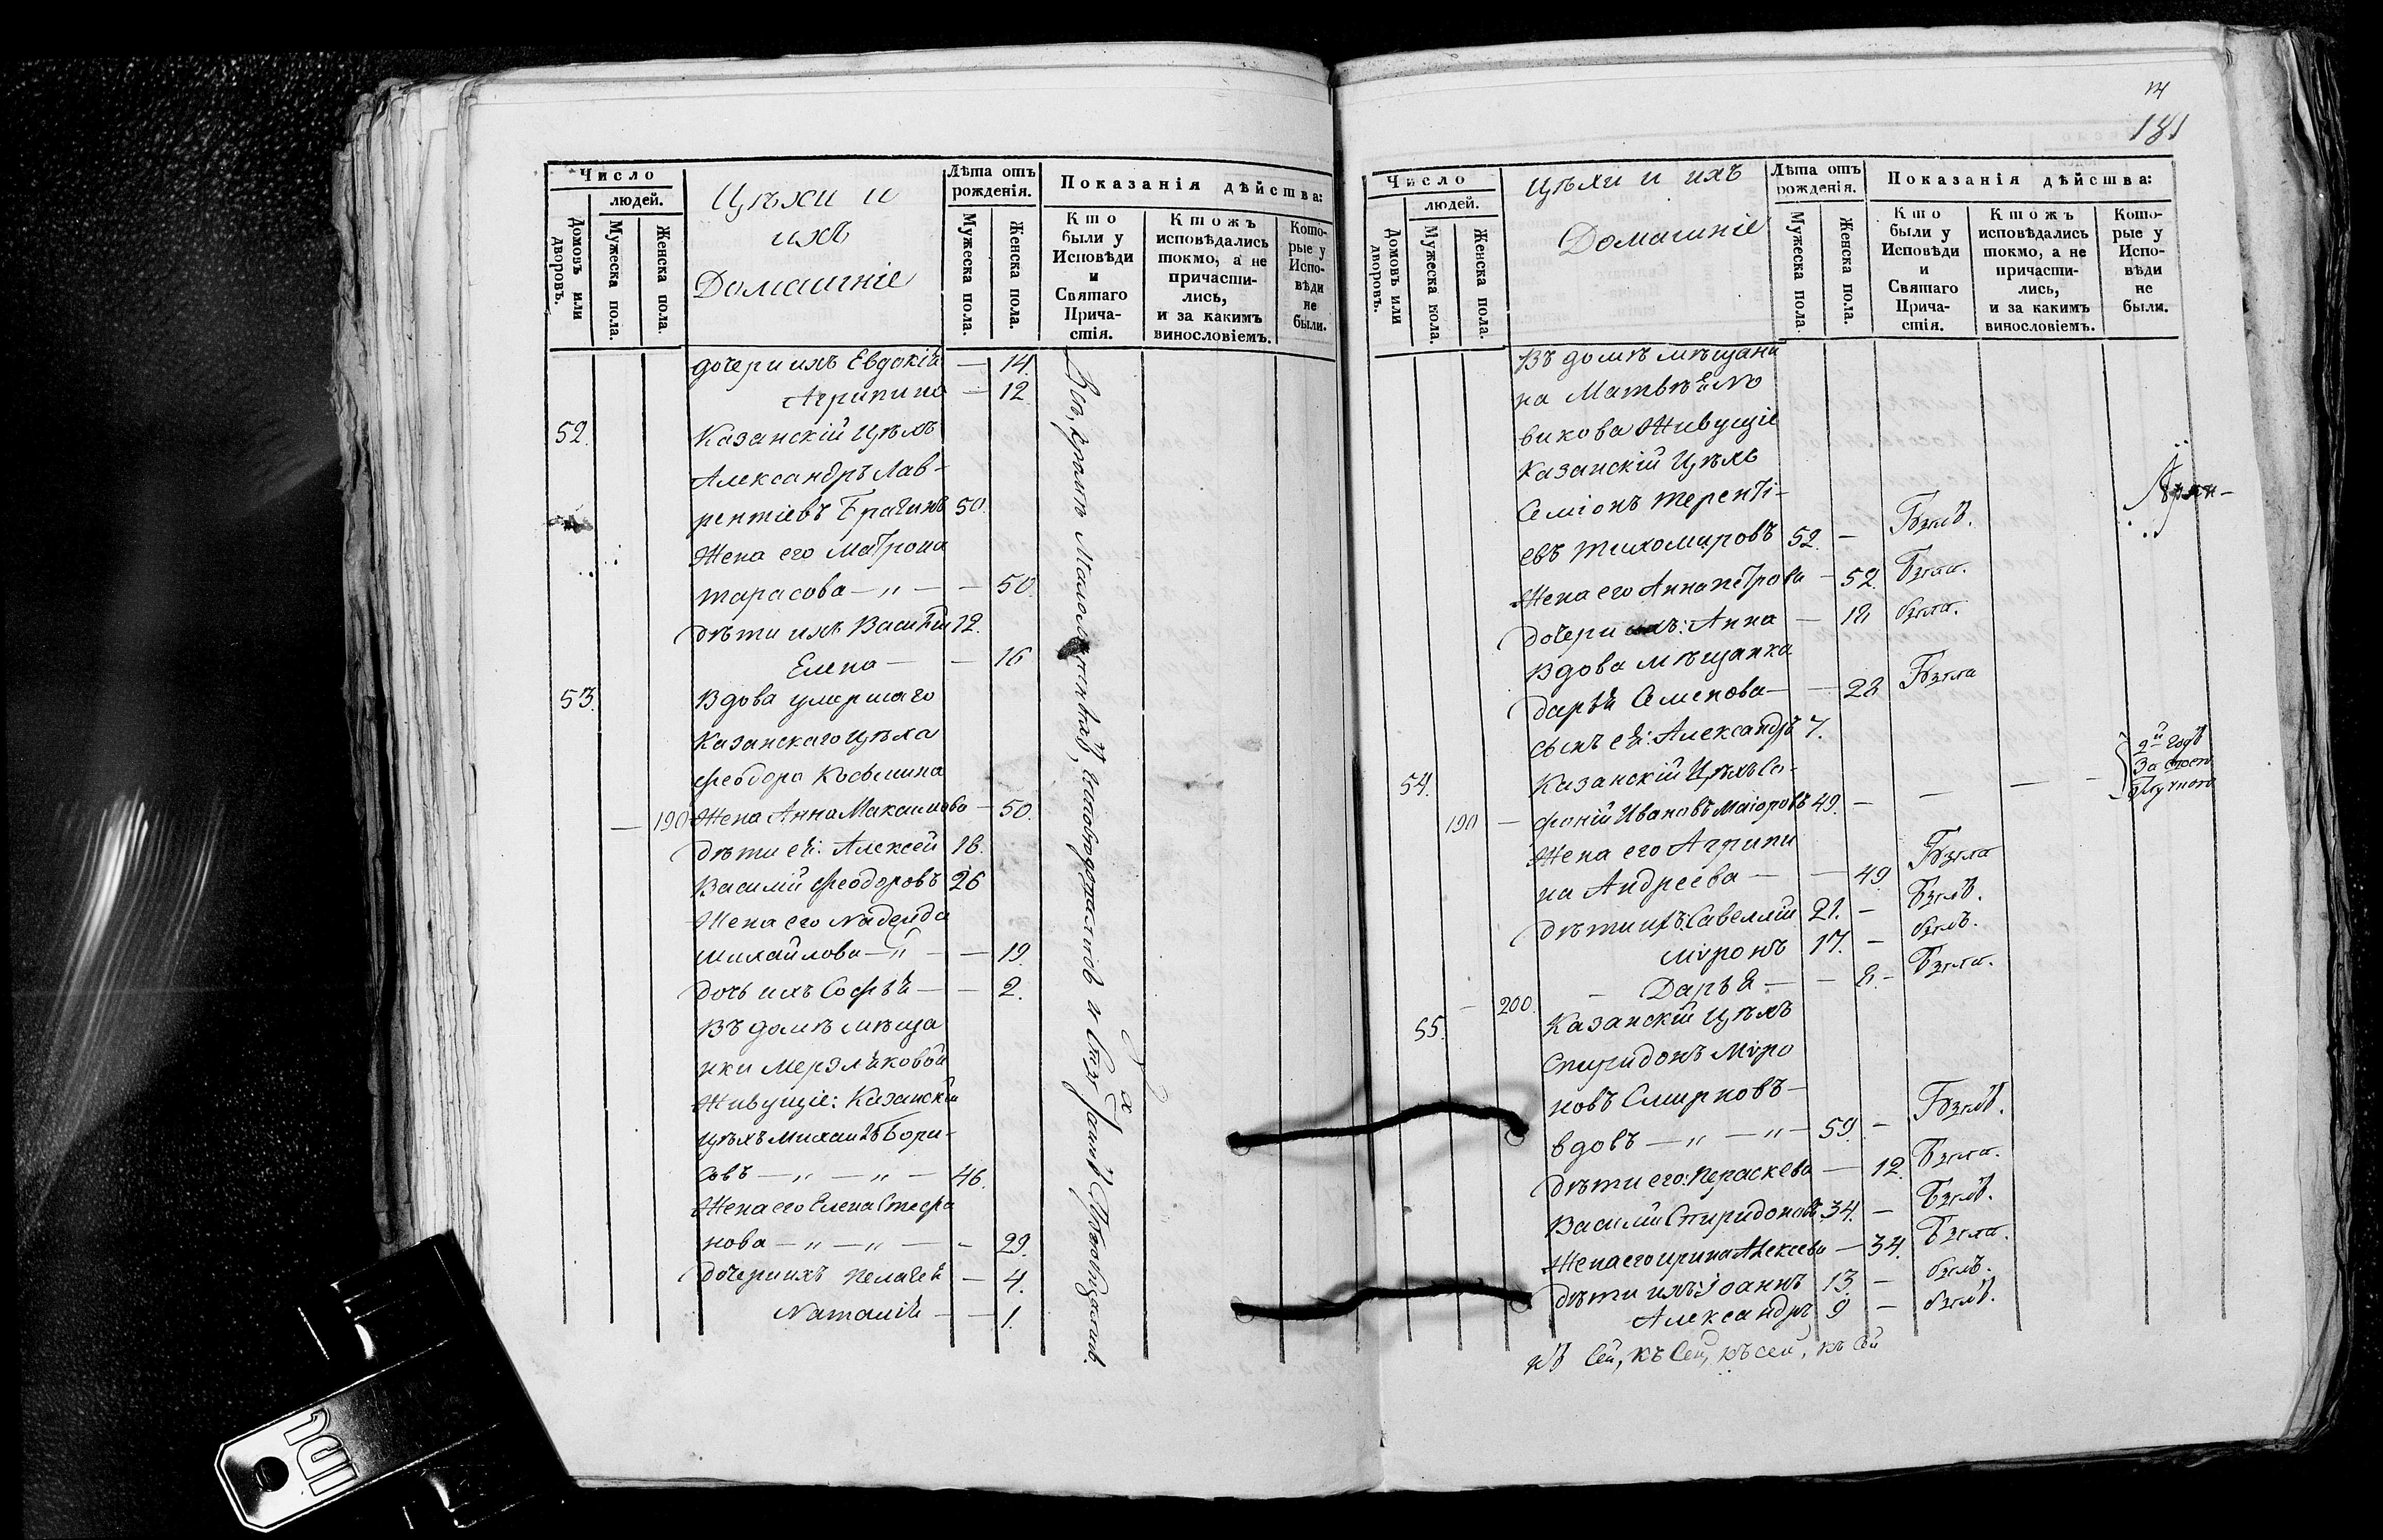 Число
людей.
Домовъ или дворовъ.
Мужеска пола.
Женска пола.
Цѣхи и
ихъ
Домашніе
Лѣта отъ рожденія.
Мужеска пола.
Женска пола.
Показанія дѣйства:
Кто были у Исповѣди и Святаго Причастія.
Ктожъ исповѣдались токмо, а не причастились, и за какимъ винословіемъ.
Которые у Исповѣди не были.
дочери ихъ Евдокія — 14.
Агрипина — 12
52. Казанскій Цѣхъ
Александръ Лав-
рентіевъ Брагинъ 50.
Жена его Матрона
Тарасова — „ — — 50.
Дѣти ихъ Василій 12.
Елена — — 16
53. Вдова умершаго
Казанскаго Цѣха
Феодора Косьмина
— 190 Жена Анна Максимова — 50.
Дѣти ея: Алексей 18.
Василій Феодоровъ 26
Жена его Надежда
Михайлова — „ — — 19.
Дочь ихъ Софья — — 2.
Въ домѣ мѣща
нки Мерзляковой
Живущіе: Казанскій
цѣхъ Михаилъ Бори-
совъ — „ — „ — 46.
Жена его Елена Стефа
нова — „ — „ — - 29.
Дочери ихъ Пелагея — 4.
Наталія — — 1.
Всѣ, кромѣ исповѣдались и Святыхъ
181
Число
людей.
Домовъ или дворовъ.
Мужеска пола.
Женска пола.
Цѣхи и ихъ
Домашніе
Лѣта отъ рожденія.
Мужеска пола.
Женска пола.
Показанія дѣйства:
Кто были у Исповѣди и Святаго Причастія.
Ктожъ исповѣдались токмо, а не причастились, и за какимъ винословіемъ.
Которые у Исповѣди не были.
Въ домѣ мѣщани
на Матвѣя Но
викова Живущіе
Казанскій Цѣхъ
Семіонъ Теренті-
евъ Тихомировъ 52. — Былъ.
Жена его Анна Петрова — 52 Была.
Дочери ихъ: Анна — 18 была.
Вдова мѣщанка
Дарья Семенова — — 28 Была
сынъ ея: Александръ 7.
54. Казанскій Цѣхъ Со-
190 — фоній Ивановъ Маіоровъ 49. — — — — 2й Годъ За
Жена его Агрипи
на Андреева — — 49. Была
Дѣти ихъ: Савеллій 21. — Былъ.
Мѵронъ 17. — былъ.
— 200. — Дарья — — 8. — Была.
55. Казанскій Цѣхъ
Спиридонъ Мѵро
новъ Смирновъ —
вдовъ — „ — „ — 59. — Былъ.
Дѣти его: Параскева — 12. Была.
Василій Спиридоновъ 34. — Былъ.
Жена его Ирина Алексеева — 34. Была.
Дѣти ихъ: Іоаннъ 13. — былъ.
Александръ 9 — былъ.
къ сей, къ сей, къ сей, къ сей